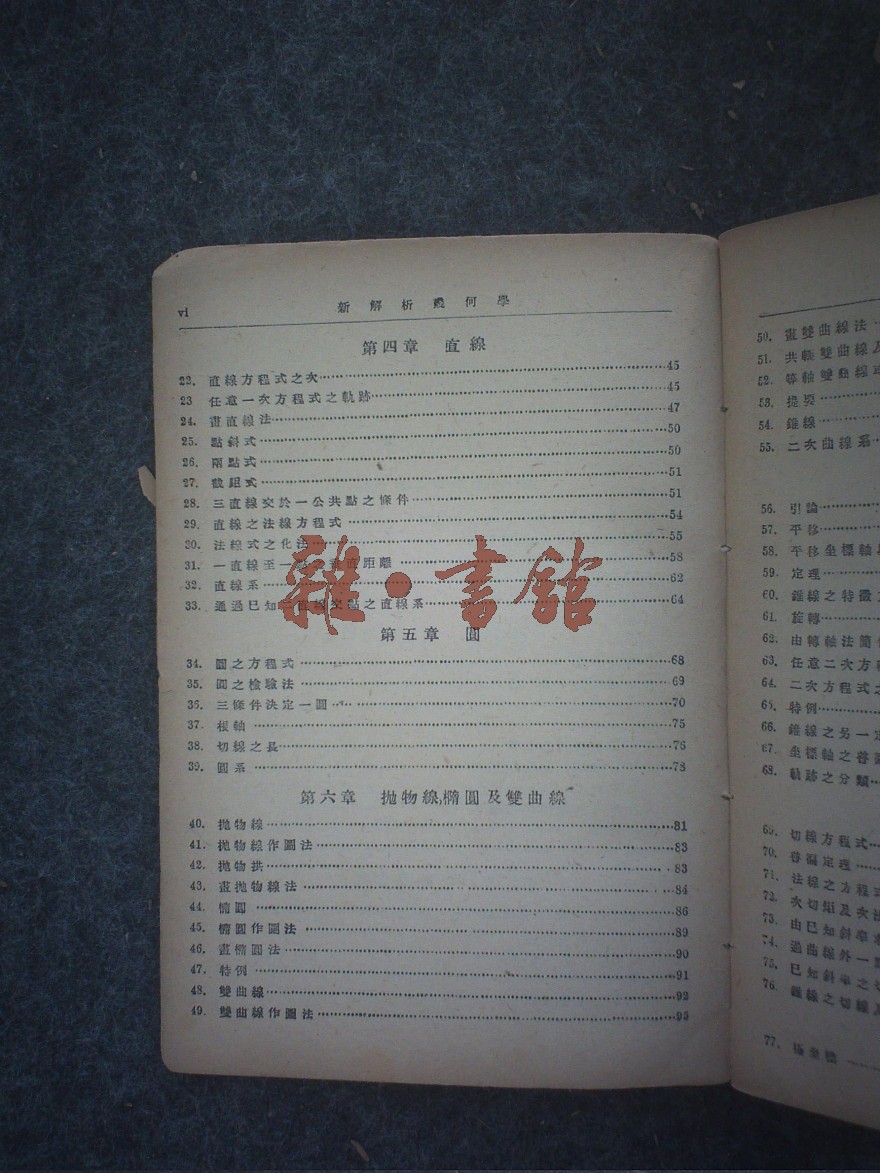 vi 新解析幾何學
第四章 直線
22. 直線方程式之次 45
23 任意一次方程式之軌跡 45
24. 畫直線法 47
25. 點斜式 50
26. 兩點式 50
27. 截距式 51
28. 三直線交於一公共點之條件 51
29. 直線之法線方程式 54
30. 法線式之化法 55
31. 一直線至一點之垂直距離 58
32. 直線系 62
33. 通過已知二直線交點之直線系 64
雜·書館
第五章 圓
34. 圓之方程式 68
35. 圓之檢驗法 69
36. 三條件決定一圓 70
37. 根軸 75
38. 切線之長 76
39. 圓系 78
第六章 拋物線,橢圓及雙曲線
40. 拋物線 81
41. 拋物線作圖法 83
42. 拋物拱 83
43. 畫拋物線法 84
44. 橢圓 86
45. 橢圓作圖法 89
46. 畫橢圓法 90
47. 特例 91
48. 雙曲線 92
49. 雙曲線作圖法 95
50. 畫雙曲線法
51. 共軛雙曲線及
52. 等軸雙曲線或
53. 提要
54. 錐線
55. 二次曲線系
56. 引論
57. 平移
58. 平移坐標軸
59. 定理
60. 錐線之特徵
61. 旋轉
62. 由轉軸法簡
63. 任意二次方程
64. 二次方程式之
65. 特例
66. 錐線之另一定
67. 坐標軸之普
68. 軌跡之分類
69. 切線方程式
70. 普遍定理
71. 法線之方程式
72. 次切距及次法
73. 由已知斜率
74. 過曲線外一點
75. 已知斜率之切
76. 錐線之切線及
77. 極坐標